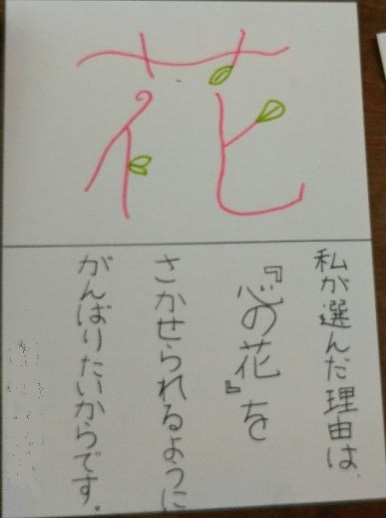 花
私が選んだ理由は、
『心の花』を
さかせられるように
がんばりたいからです。